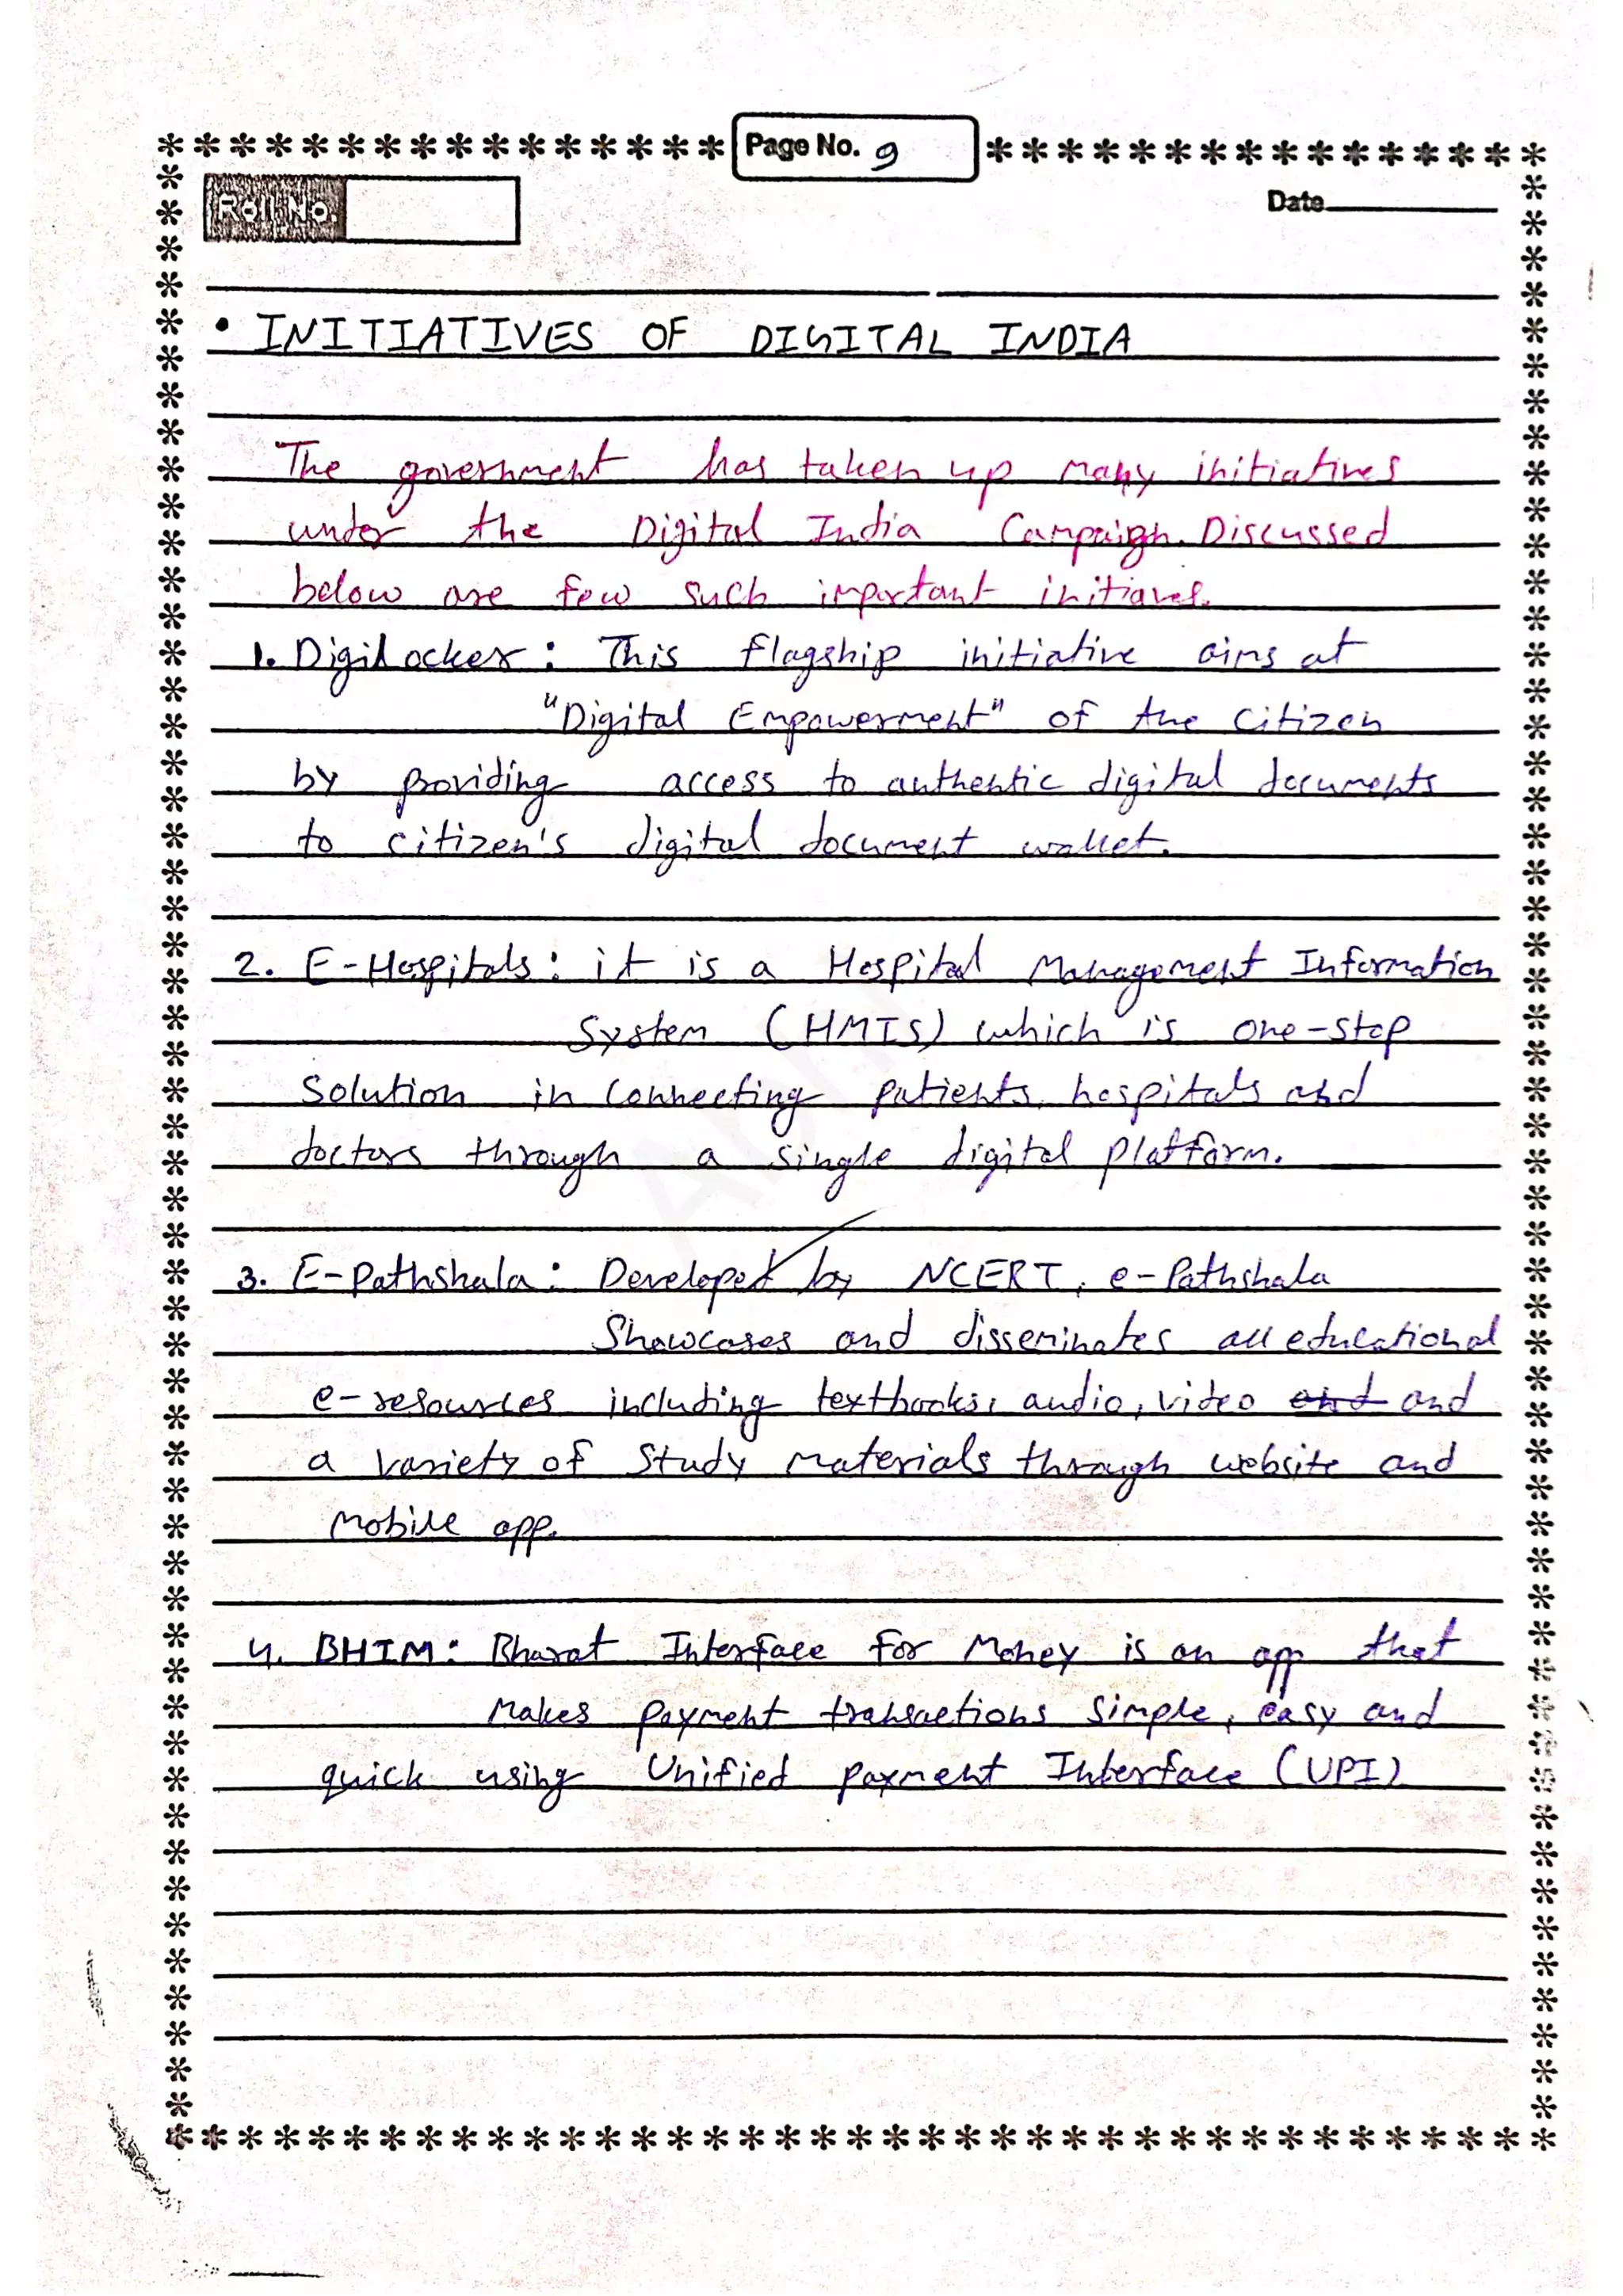 Page No. 9
Roll No.
Date
• INITIATIVES OF DIGITAL INDIA
The government has taken up many initiatives
under the Digital India Campaign. Discussed
below are few such important initiaves.
1. DigiLocker: This flagship initiative aims at
"Digital Empowerment" of the citizen
by providing access to authentic digital documents
to citizen's digital document wallet.
2. E-Hospitals: it is a Hospital Management Information
System (HMIS) which is one-stop
Solution in Connecting patients, hospitals and
doctors through a single digital platform.
3. E-Pathshala: Developed by NCERT, e-Pathshala
Showcases and disseminates all educational
e-resources including textbooks, audio, video and and
a variety of Study materials through website and
mobile app.
4. BHIM: Bharat Interface for Money is an app that
makes payment transactions simple, easy and
quick using Unified payment Interface (UPI)